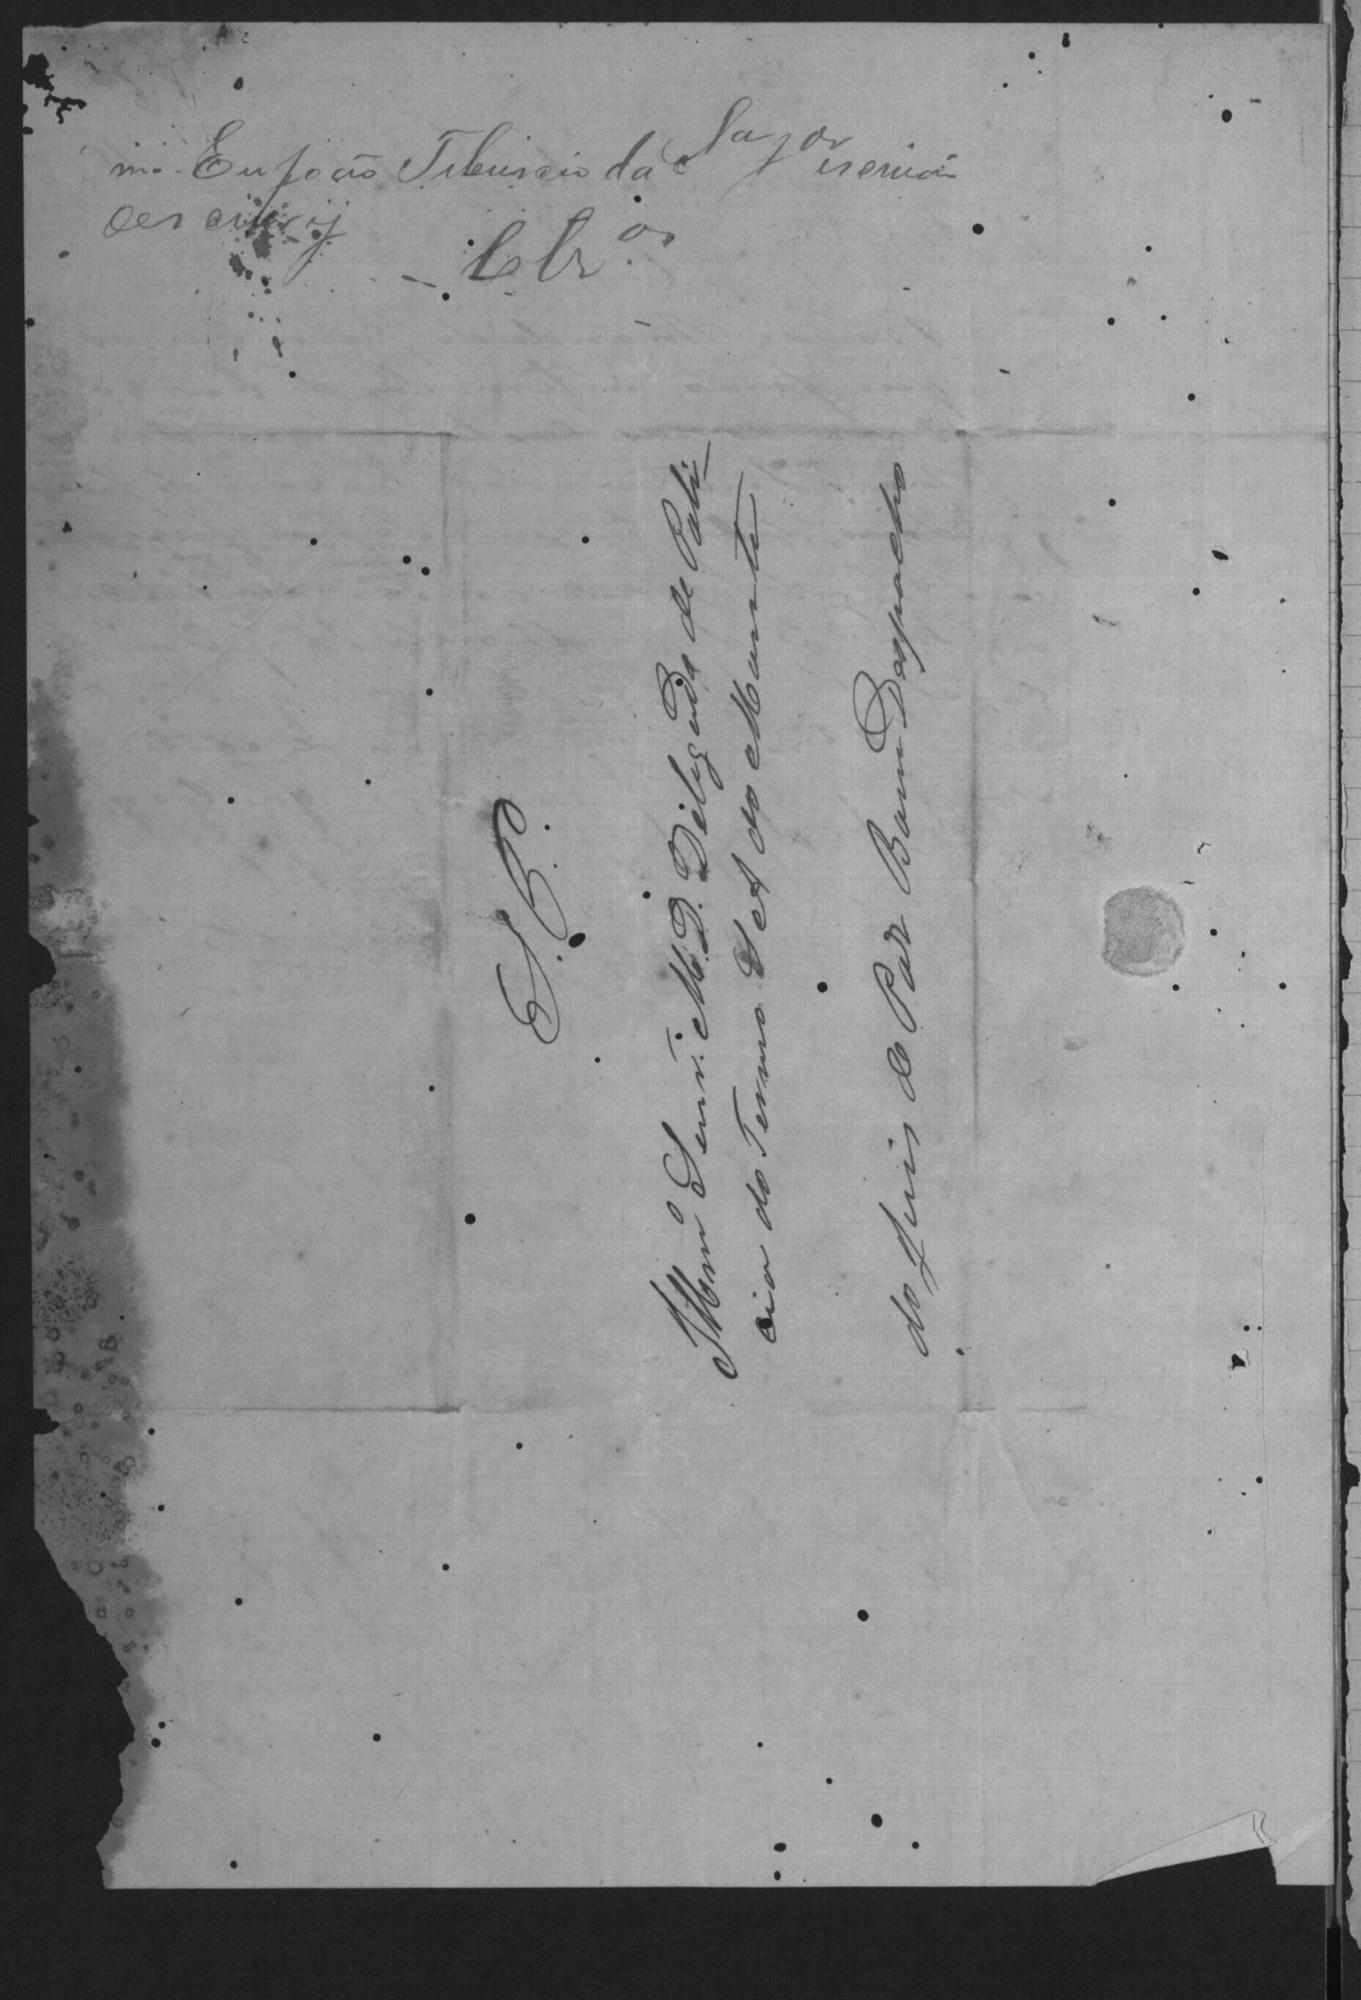 mo. Eu João Tiburcio da escrivão
oescrevij
Cl.os
S. P.
Illmº Senrº. M. D. Delegado de Poli-
cia do Termo S A do Monte
do Juis de Paz Bom Despacho